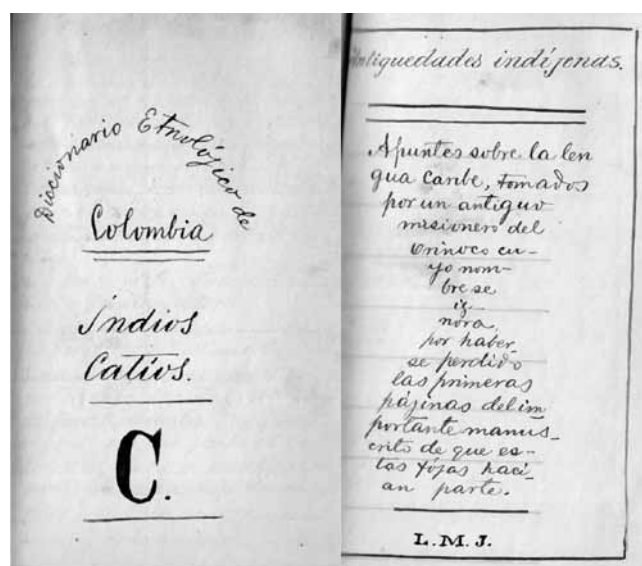 Diccionario Etnológico de
Colombia
Indios
Catíos.
C.
Antiguedades indíjenas.
Apuntes sobre la len
gua Caribe, tomados
por un antiguo
misionero del
Orinoco cu-
yo nom-
bre se
ig-
nora,
por haber
se perdido
las primeras
pájinas del im
portante manus-
crito de que es-
tas fójas hací-
an parte.
L.M.J.